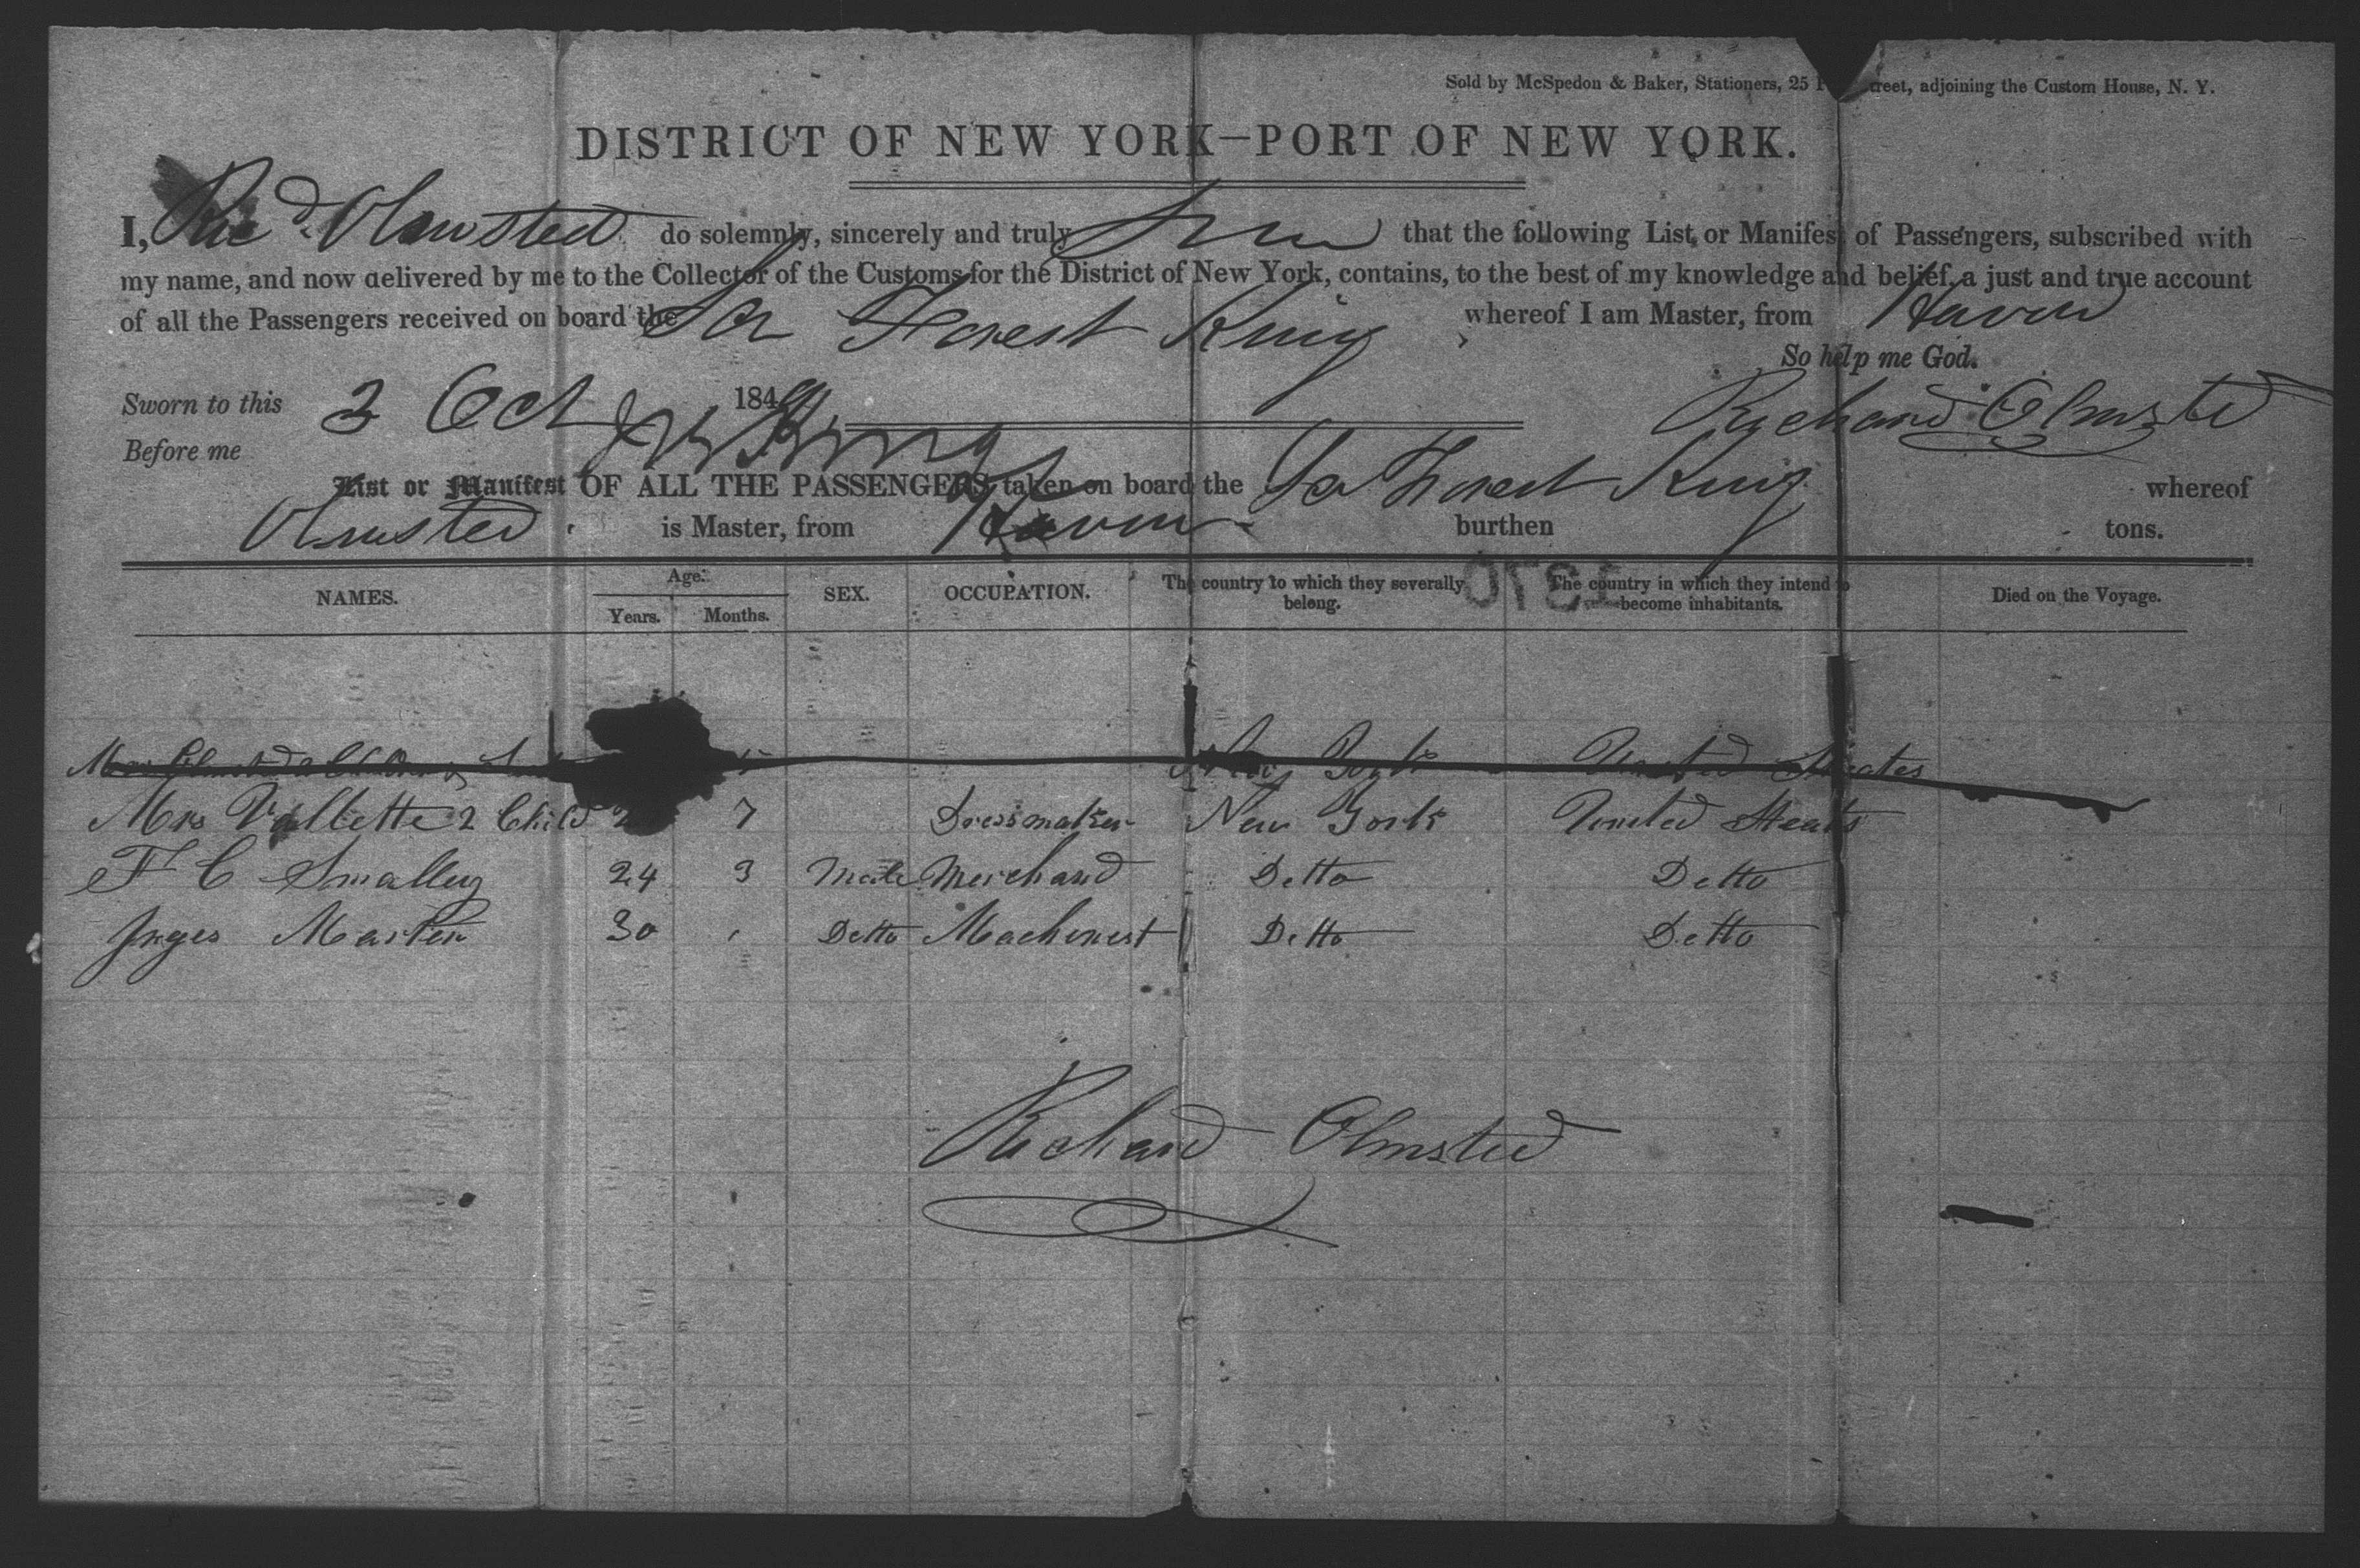 Sold by McSpedon & Baker, Stationers, 25 Street, adjoining the Custom House, N. Y.
DISTRICT OF NEW YORK—PORT OF NEW YORK.
I, Ricd. Olmsted do solemnly, sincerely and truly that the following List or Manifest of Passengers, subscribed with
my name, and now delivered by me to the Collector of the Customs for the District of New York, contains, to the best of my knowledge and belief, a just and true account
of all the Passengers received on board the Forest King whereof I am Master, from Havre
So help me God.
Sworn to this 2 Oct 184
Before me Richard Olmsted
List or Manifest OF ALL THE PASSENGERS taken on board the Forest King whereof
Olmsted is Master, from Havre burthen tons.
NAMES. Age. Years. Months. SEX. OCCUPATION. The country to which they severally belong. The country in which they intend to become inhabitants. Died on the Voyage.
New York United States
Mrs Vallette 2 Child 7 Dressmaker New York United Steats
F C Smalley 24 3 Male Merchand Detto Detto
Marten 30 Detto Machenest Detto Detto
Richard Olmsted